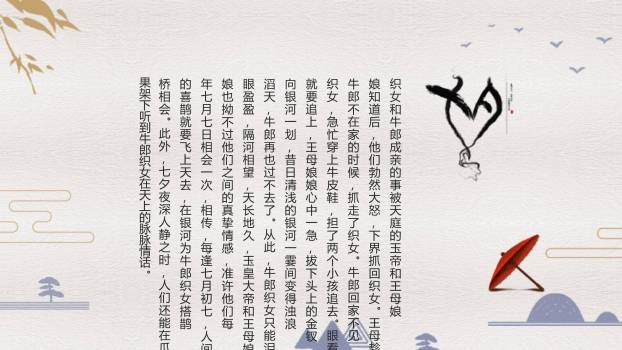 织女和牛郎成亲的事被天庭的玉帝和王母娘
娘知道后,他们勃然大怒,下界抓回织女。王母趁
牛郎不在家的时候,抓走了织女。牛郎回家不见
织女,急忙穿上牛皮鞋,担了两个小孩追去。眼看
就要追上,王母娘娘心中一急,拔下头上的金钗
向银河一划,昔日清浅的银河一霎间变得浊浪
滔天,牛郎再也过不去了。从此,牛郎织女只能泪
眼盈盈,隔河相望,天长地久,玉皇大帝和王母娘
娘也拗不过他们之间的真挚情感,准许他们每
年七月七日相会一次,相传,每逢七月初七,人间
的喜鹊就要飞上天去,在银河为牛郎织女搭鹊
桥相会。此外,七夕夜深人静之时,人们还能在瓜
果架下听到牛郎织女在天上的脉脉情话。